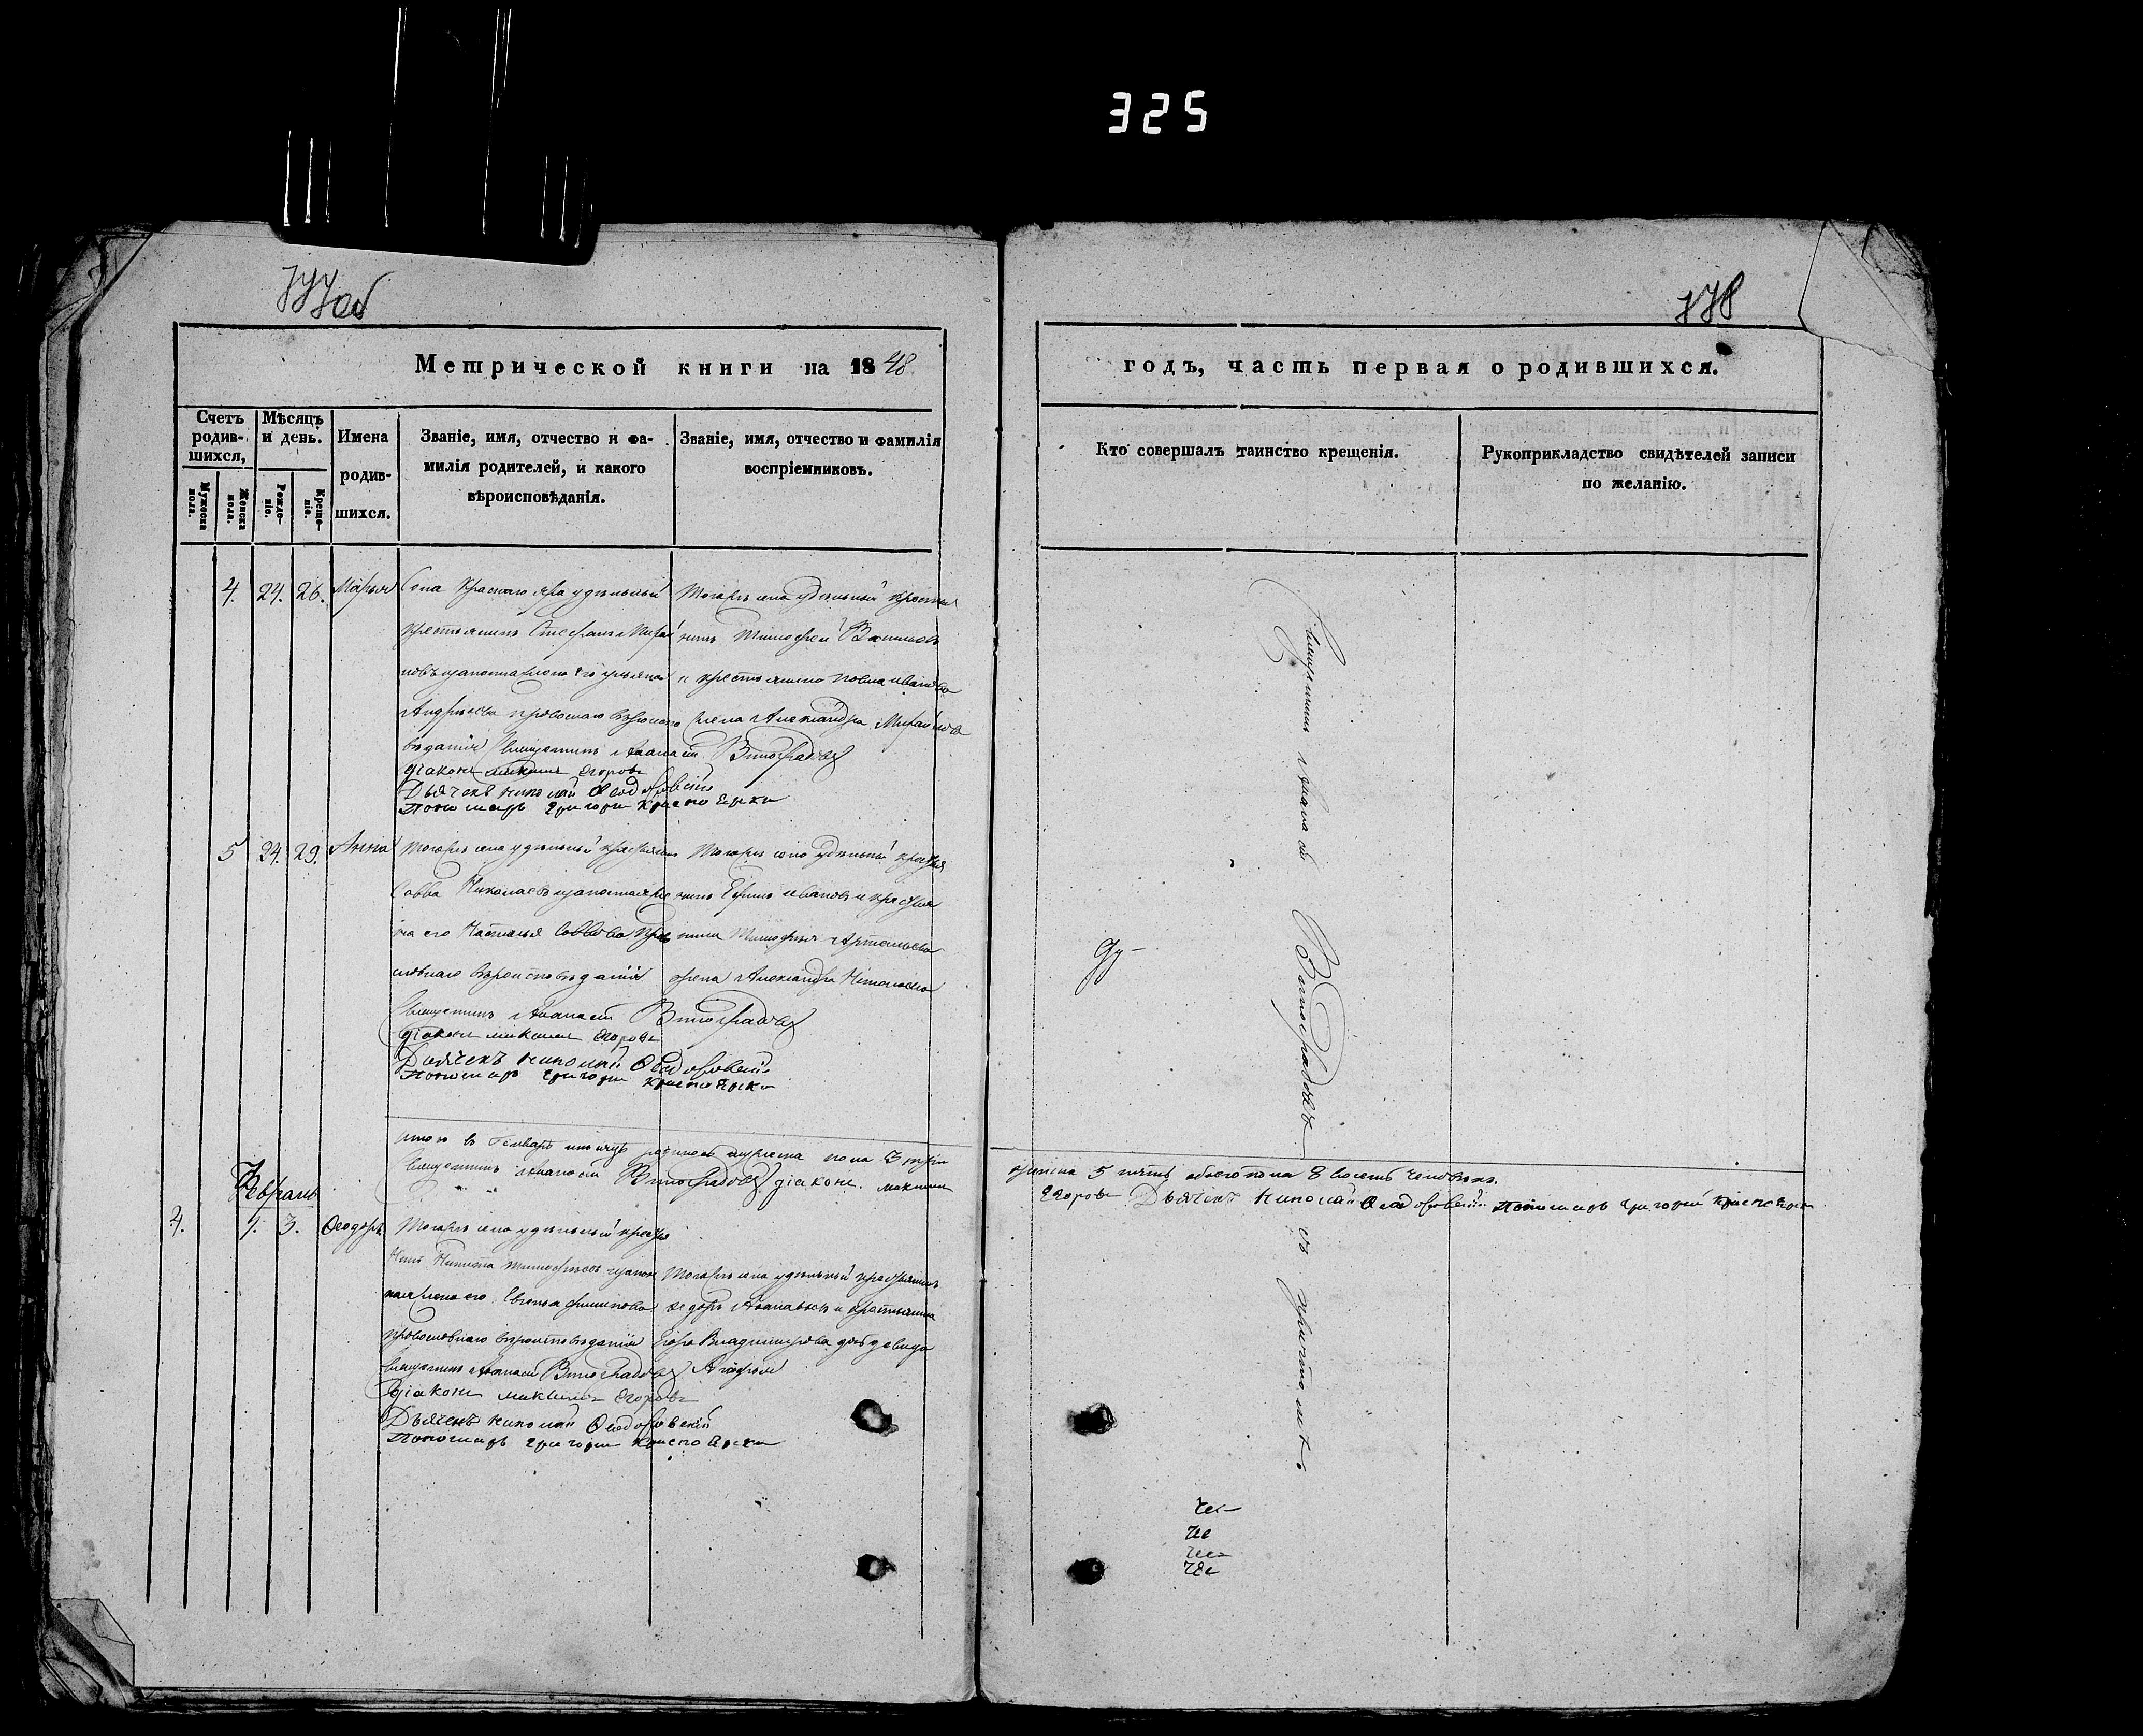 325
777об
778
Метрической книги на 1848
годъ, часть первая о родившихся.
Счетъ родив-шихся,
Мужеска пола.
Женска пола.
Мѣсяцъ и день.
Рожде-ніе.
Креще-ніе.
Имена
родив-
шихся.
Званіе, имя, отчество и фа-
милія родителей, и какого
вѣроисповѣданія.
Званіе, имя, отчество и фамилія
воспріемниковъ.
Кто совершалъ таинство крещенія.
Рукоприкладство свидѣтелей записи
по желанію.
4. 24. 26. Марья
Села Краснаго Яра удѣльный
крестьянинъ Стефанъ Михай
ловъ изаконная жена его
Андреева православнаго вѣроиспо
вѣданія Священникъ Аѳанасій Виноградовъ
діаконъ Максимъ Егоровъ
Дьячекъ Николай Ѳеодоровскій
Пономарь Григорій Красноярскій
Тогоже села удѣльный крестья
нинъ Тимофей Васильевъ
и крестьянина Павла Иванова
жена Александра Михайлова
5 24. 29. Анна
Тогоже села удѣльный крестьянинъ
Савва Николаевъ изаконная же
на его Наталья Саввова Прав
ославнаго вѣроисповѣданія
Священникъ Аѳанасій Виноградовъ
діаконъ Максимъ Егоровъ
Дьячекъ Николай Ѳеодоровскій
Пономарь Григорій Красноярскій
Тогоже села удѣльный крестья
нинъ Ефимъ Ивановъ и крестья
нина Тимофея
жена Александра
Итого въ Генварѣ мѣсяцѣ родилось мужеска пола 3 три
женска 5 пять обоего пола 8 восемь человѣкъ.
Священникъ Аѳанасій Виноградовъ діаконъ Максимъ
Егоровъ Дьячекъ Николай Ѳеодоровскій Пономарь Григорій Красноярск
Февраль
4. 1. 3. Ѳеодоръ
Тогоже села удѣльный крестья
нинъ Никита Тимофеевъ изакон
ная жена его Евгенья Филипова
православнаго вѣроисповѣданія
Священникъ Аѳанасій Виноградовъ
діаконъ Максимъ Егоровъ
Дьячекъ Николай Ѳеодоровскій
Пономарь Григорій Красноярскій
Тогоже села удѣльный крестьянинъ
Ѳедоръ Аѳанасьевъ и крестьянина
Егора Владимирова дочь девица
Агафья
Священникъ Аѳанасій Виноградовъ съ причтомъ.